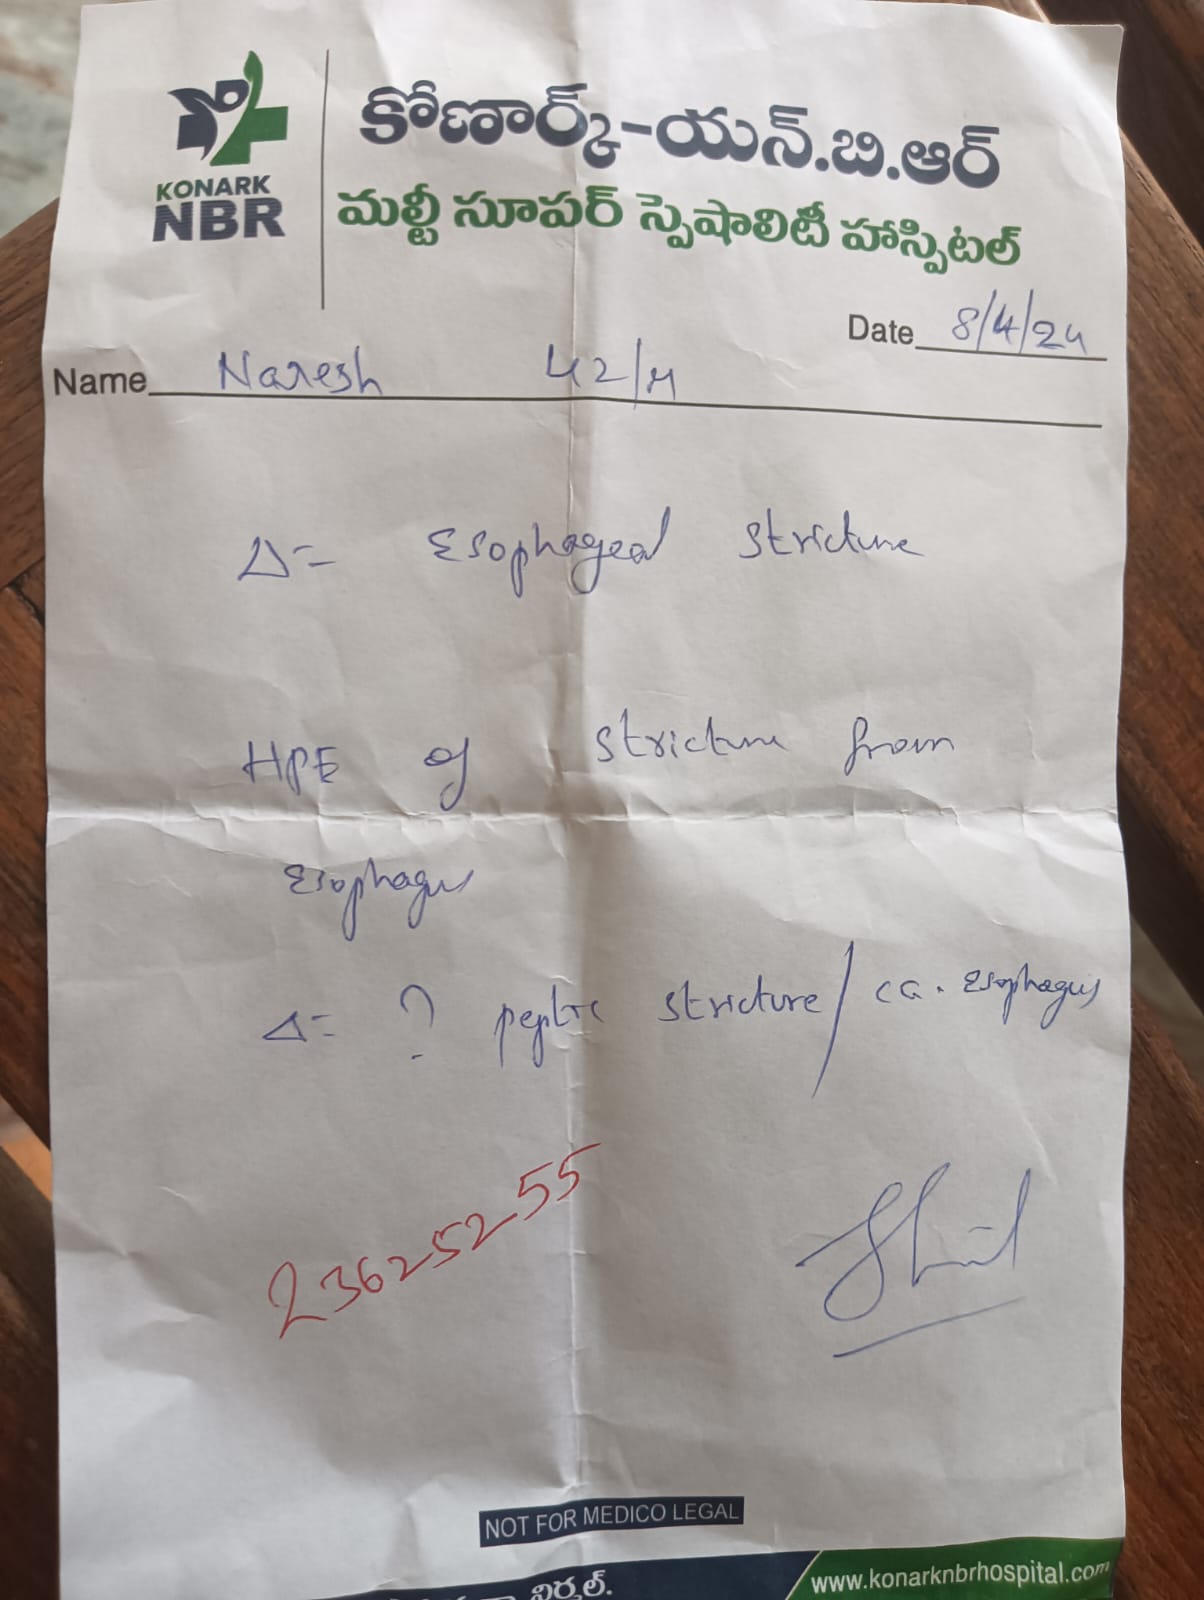 KONARK
NBR
కోణార్క్-యన్.బి.ఆర్
మల్టీ సూపర్ స్పెషాలిటీ హాస్పిటల్
Date 8/4/24
Name Naresh 42/M
Δ= Esophageal stricture
HPE of stricture from
Esophagus
Δ= ? peptic stricture / ca. Esophagus
23625255
NOT FOR MEDICO LEGAL
నిర్మల్.
www.konarknbrhospital.com